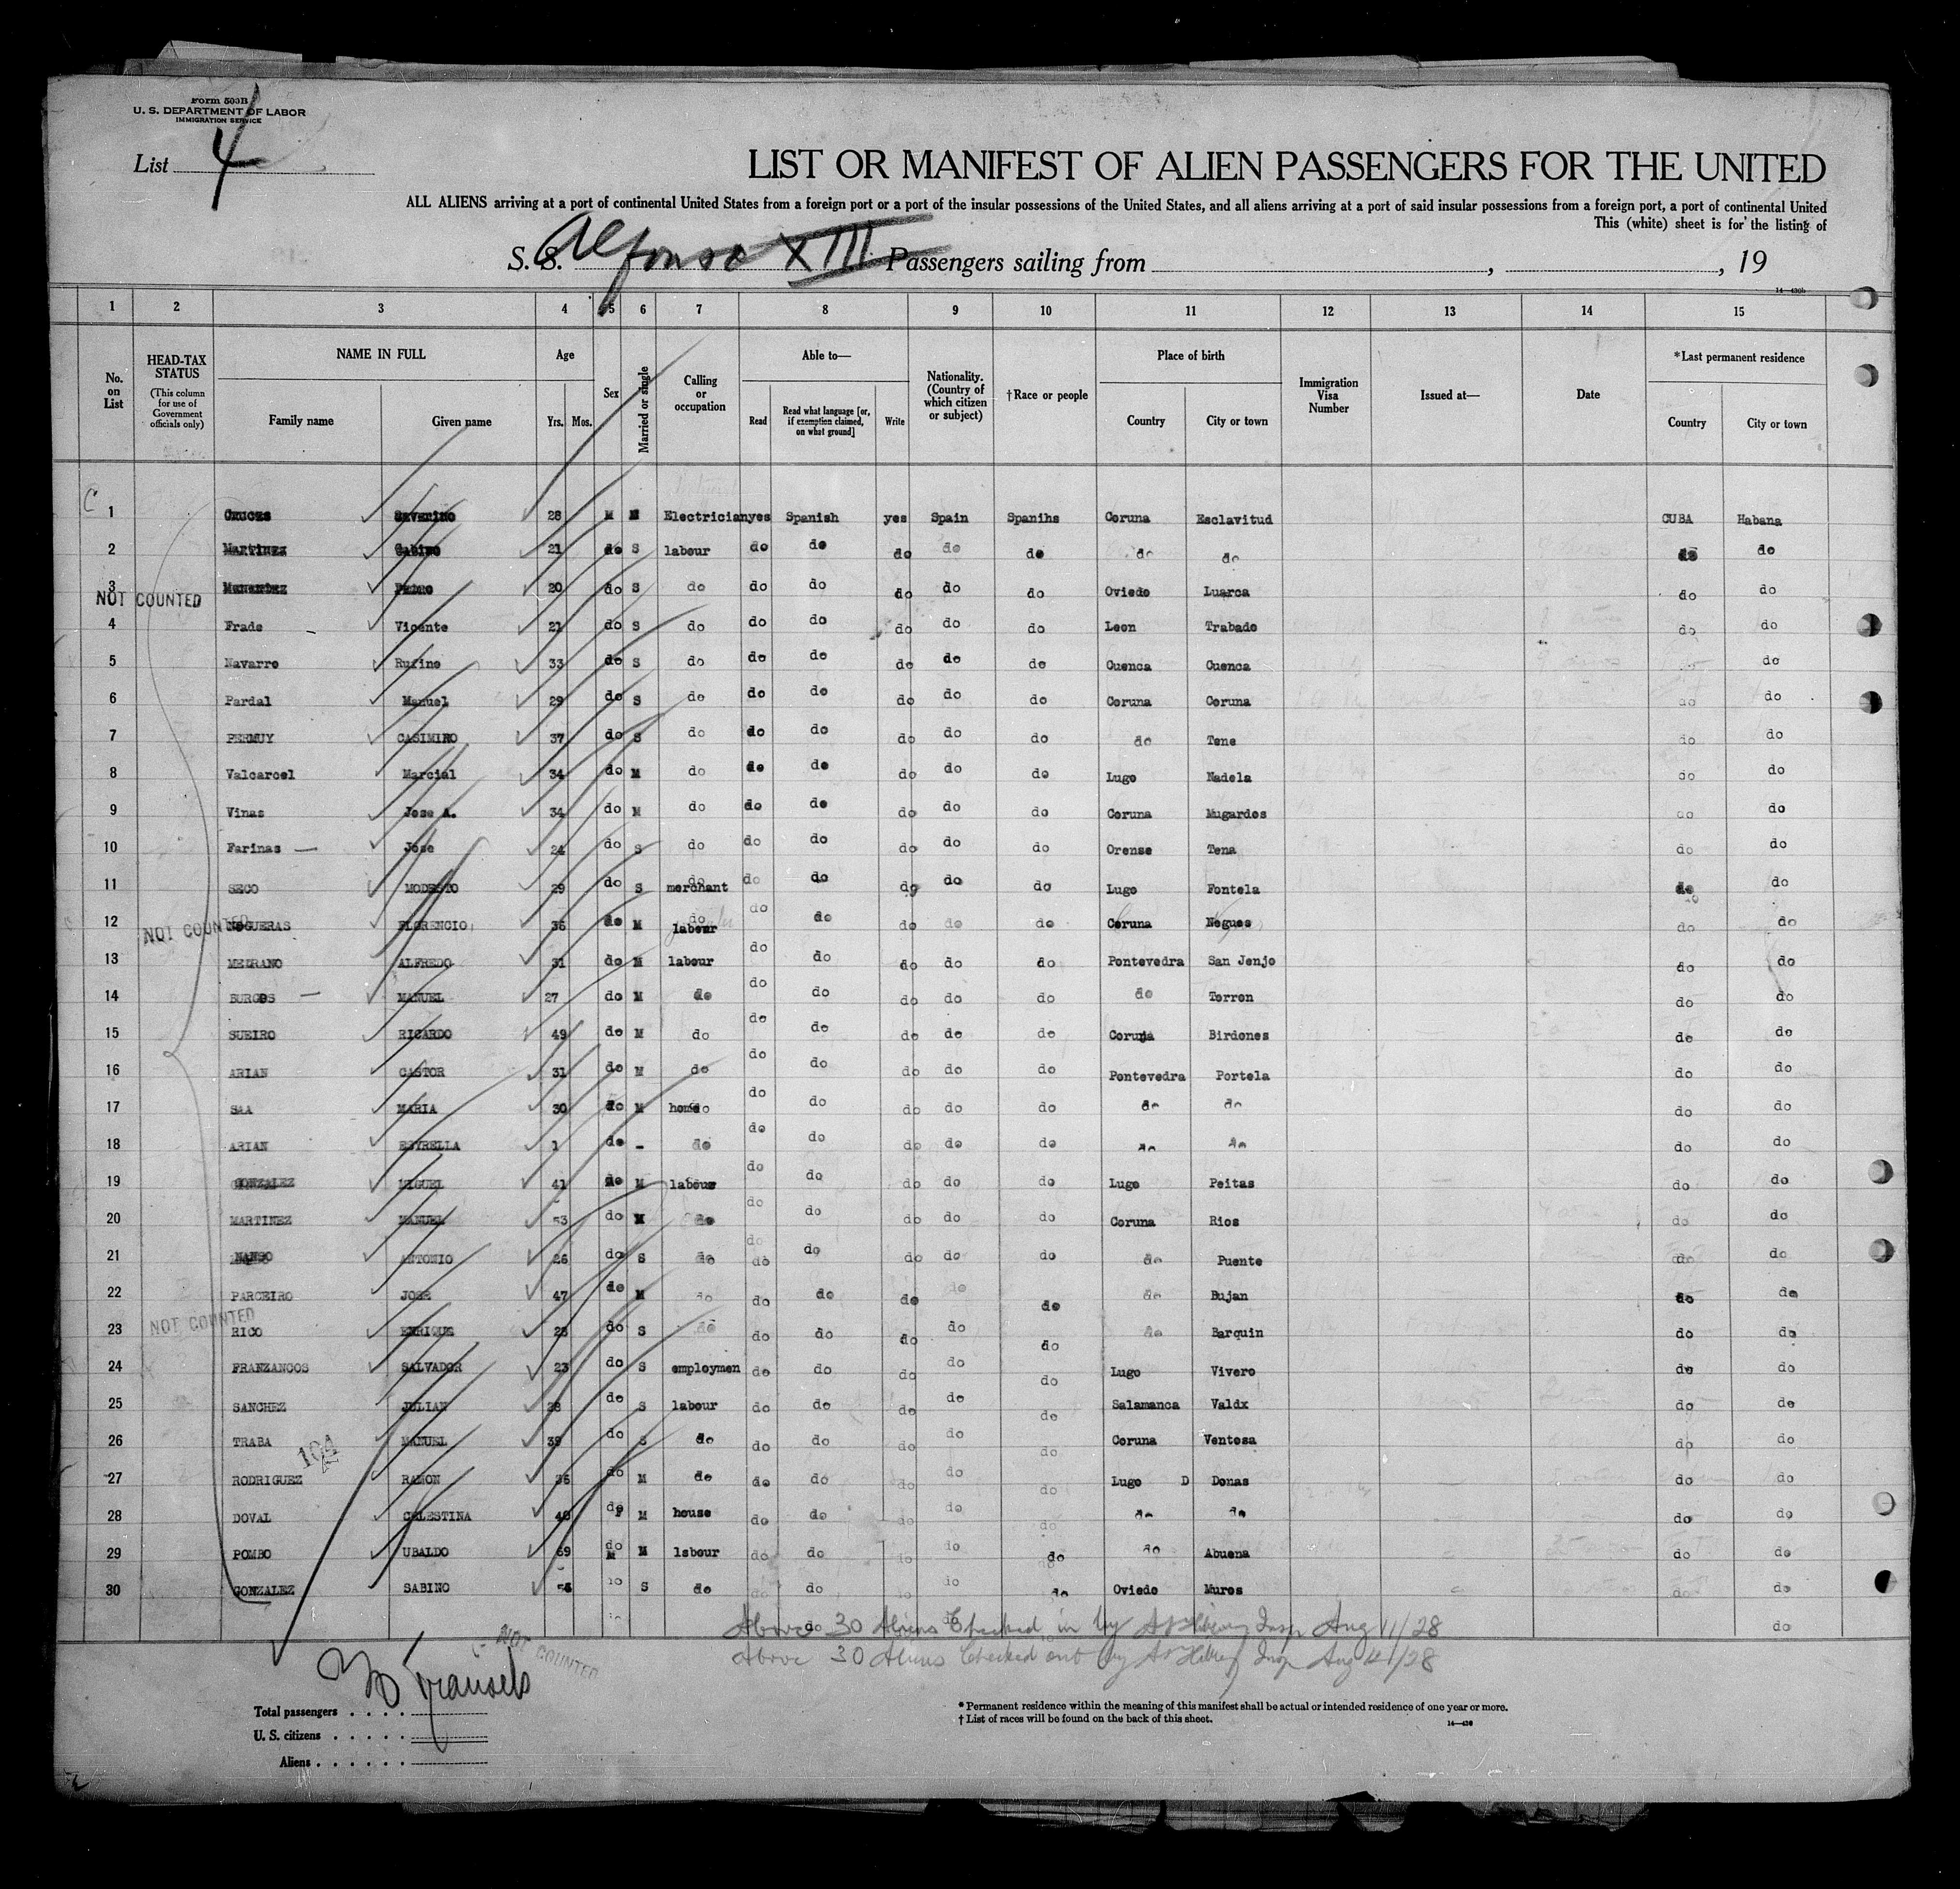 Form 503B
U. S. DEPARTMENT OF LABOR
IMMIGRATION SERVICE
List 4
LIST OR MANIFEST OF ALIEN PASSENGERS FOR THE UNITED
ALL ALIENS arriving at a port of continental United States from a foreign port or a port of the insular possessions of the United States, and all aliens arriving at a port of said insular possessions from a foreign port, a port of continental United
This (white) sheet is for the listing of
S. S. Alfonso XIII Passengers sailing from , , 19
1 2 3 4 5 6 7 8 9 10 11 12 13 14 15
No. on List
HEAD-TAX STATUS (This column for use of Government officials only)
NAME IN FULL Family name Given name
Age Yrs. Mos.
Sex
Married or single
Calling or occupation
Able to— Read Read what language [or, if exemption claimed, on what ground] Write
Nationality. (Country of which citizen or subject)
†Race or people
Place of birth Country City or town
Immigration Visa Number
Issued at—
Date
*Last permanent residence Country City or town
1 Cruces Severino 28 M M Electrician yes Spanish yes Spain Spanihs Coruna Esclavitud CUBA Habana
2 Martinez Gabino 21 do S labour do do do do do do do do do
3 Menendez 20 do S do do do do do do Oviedo Luarca do do
NOT COUNTED
4 Frade Vicente 21 do S do do do do do do Leon Trabado do do
5 Navarro Rufino 33 do S do do do do do do Cuenca Cuenca do do
6 Pardal Manuel 29 do S do do do do do do Coruna Coruna do do
7 PERMUY CASIMIRO 37 do S do do do do do do do Tene do do
8 Valcarcel Marcial 34 do M do do do do do do Lugo Nadela do do
9 Vinas Jose A. 34 do M do do do do do do Coruna Mugardos do do
10 Farinas — Jose 24 do S do do do do do do Orense Tena do do
11 SECO MODESTO 29 do S merchant do do do do do Lugo Fontela do do
12 NOGUERAS FLORENCIO 36 do M labour do do do do do Coruna Negues do do
NOT COUNTED
13 MEDRANO ALFREDO 31 do M labour do do do do do Pontevedra San Jenjo do do
14 BURGOS — MANUEL 27 do M do do do do do do do Torron do do
15 SUEIRO RICARDO 49 do M do do do do do do Coruna Birdones do do
16 ARIAN CASTOR 31 do M do do do do do do Pontevedra Portela do do
17 SAA MARIA 30 do M home do do do do do do do do do
18 ARIAN ESTRELLA 1 do - do do do do do do do do do do
19 GONZALEZ MIGUEL 41 do M labour do do do do do Lugo Peitas do do
20 MARTINEZ MANUEL 53 do M do do do do do do Coruna Rios do do
21 ANTONIO 26 do S do do do do do do do Puente do do
22 PARCEIRO JOSE 47 do M do do do do do do do Bujan do do
NOT COUNTED
23 RICO ENRIQUE 28 do S do do do do do do do Barquin do do
24 FRANZANCOS SALVADOR 23 do S employmen do do do do do Lugo Vivero do do
25 SANCHEZ JULIAN 38 do S labour do do do do do Salamanca Valdx do do
26 TRABA MANUEL 39 do S do do do do do do Coruna Ventosa do do
104
27 RODRIGUEZ RAMON 36 do M do do do do do do Lugo D Donas do do
28 DOVAL CELESTINA 40 do F M house do do do do do do do do do
29 POMBO UBALDO 69 do M M lsbour do do do do do do Abuena do do
30 GONZALEZ SABINO do S do do do do do do Oviedo Muros do do
do do
Above 30 Aliens Checked in by Insp Aug 11/28
above 30 Aliens Checked out by Insp Aug 11/28
NOT COUNTED
30 Transits
Total passengers
U. S. citizens
Aliens
* Permanent residence within the meaning of this manifest shall be actual or intended residence of one year or more.
† List of races will be found on the back of this sheet.
14—430